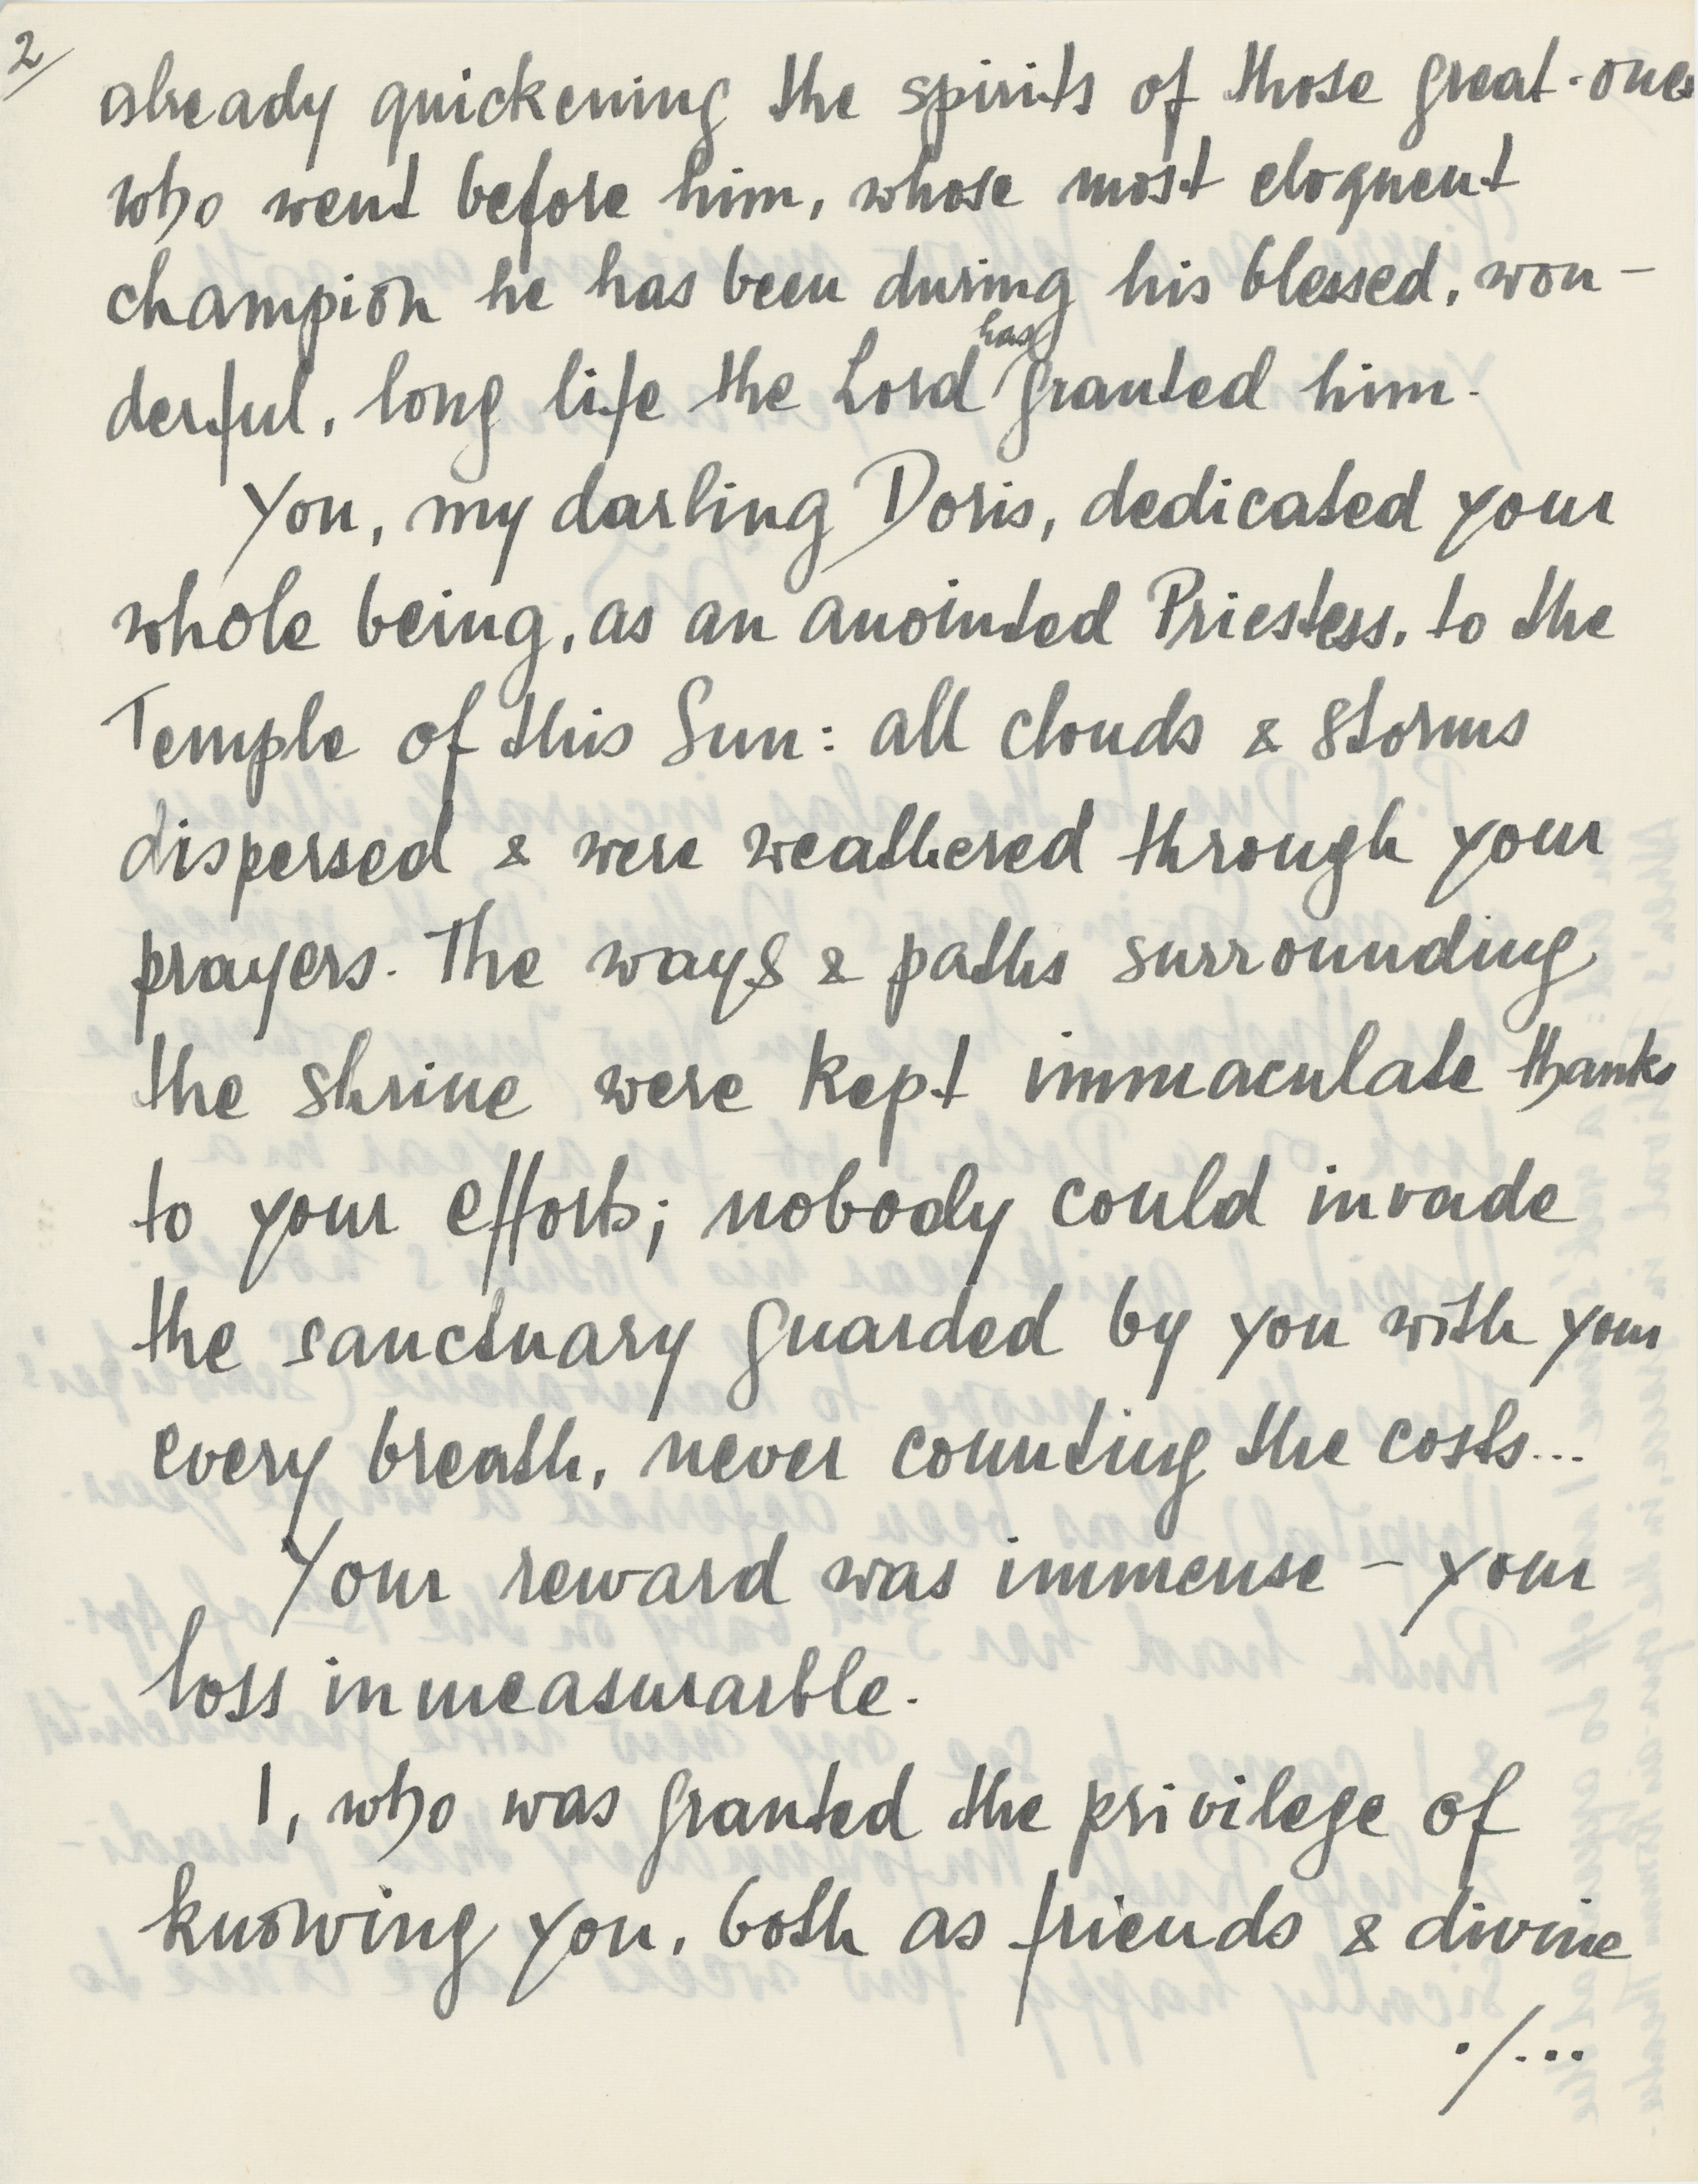 2/
already quickening the spirits of those great-ones
who went before him, whose most eloquent
champion he has been during his blessed, won-
has
derful, long life the Lord granted him.
You, my darling Doris, dedicated your
whole being, as an anointed Priestess, to the
Temple of this Sun: all clouds & storms
dispersed & were weathered through your
prayers. The ways & paths surrounding
the shrine were kept immaculate thanks
to your efforts; nobody could invade
the sanctuary guarded by you with your
every breath, never counting the costs...
Your reward was immense – your
loss inmeasurarble.
I, who was granted the privilege of
knowing you, both as friends & divine
./...